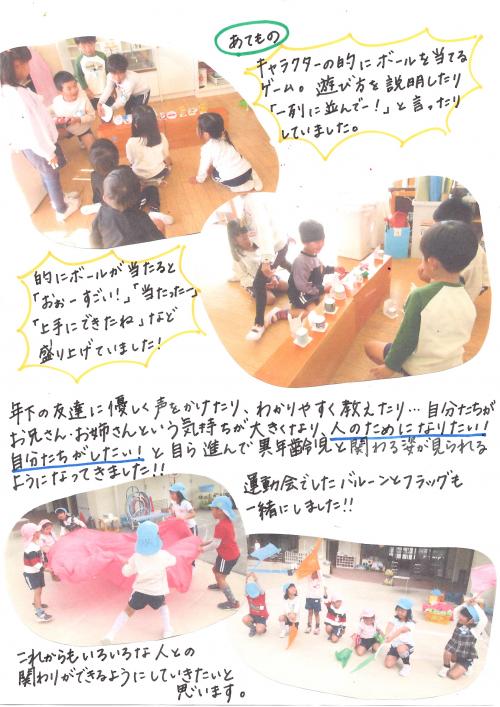 あてもの
キャラクターの的にボールを当てる
ゲーム。遊び方を説明したり
「一列に並んでー!」と言ったり
していました。
的にボールが当たると
「おぉーすごい!」「当たったー」
「上手にできたね」など
盛り上げていました!
年下の友達に優しく声をかけたり、わかりやすく教えたり…自分たちが
お兄さん・お姉さんという気持ちが大きくなり、人のためになりたい!
自分たちがしたい!と自ら進んで異年齢児と関わる姿が見られる
ようになってきました!!
運動会でしたバルーンとフラッグも
一緒にしました!!
これからもいろいろな人との
関わりができるようにしていきたいと
思います。